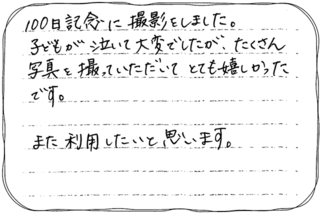 100日記念に撮影をしました。
子どもが泣いて大変でしたが、たくさん
写真を撮っていただいてとても嬉しかった
です。
また利用したいと思います。